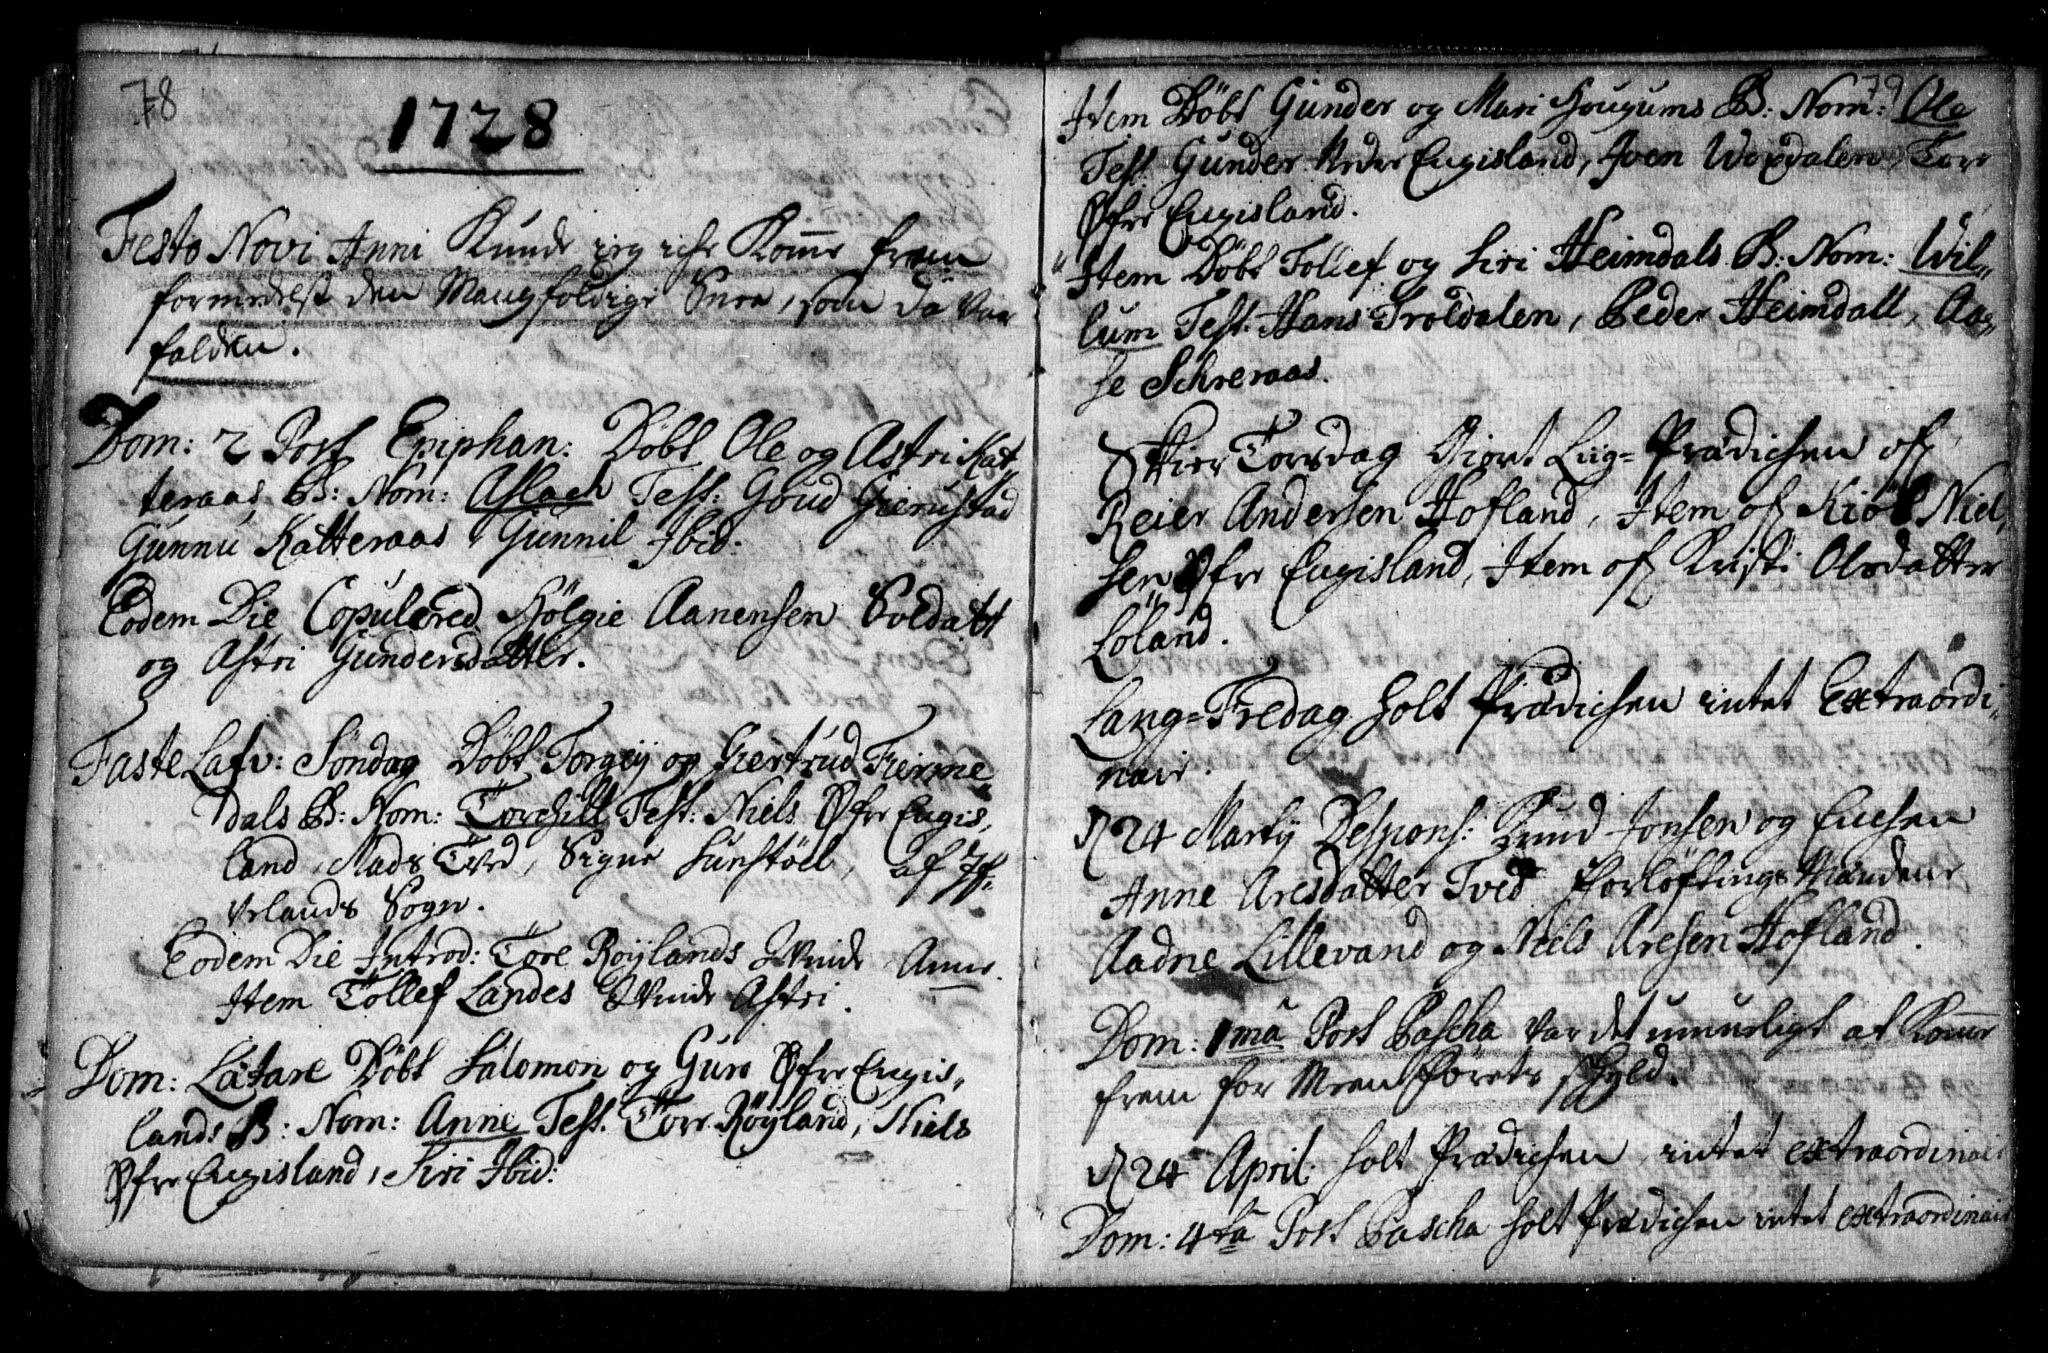 78
1728
Festo Novi Anni Kunde ieg icke Komme frem
formedelst den Mangfoldige Snee, som da Var
falden.
Dom: 2 Post Epiphan: Döbt Ole og Astri Kat-
teraas B: Nom: Aslach Test: Goud Gierustad
Gunnu Katteraas, Gunnil Ibid:
Eodem Die Copulered Hölgie Aanensen Soldatt
og Astri Gundersdatter.
FasteLafv: Søndag Döbt Torgeij og Giertrud Fierme
dals B: Nom: Torchill Test: Niels Øfre Eugis,
land, Mads Tved, Signe Sunstöel, af If-
verlands Sogn.
Eodem Die Introd: Tore Röylands Qvinde Anne.
Item Tollef Landes Qvinde Astri.
Dom: Lätare Döbt Salomon og Guro Øfre Eugis,
lands B: Nom: Anne Test. Tore Röyland, Niels
Øfre Eugisland, Siri Ibid:
79
Item Döbt Gunder og Mari Hougums B: Nom: Ole
Test Gunder Nedre Eugisland, Joen Woxdalen, Tore
Øfre Eugisland.
Item Döbt Tollef og Siri Heimdals B: Nom: Wil-
lum Test. Hans Troldalen, Peder Heimdall, Aa-
se Schreraas.
Skier Torsdag Giort Liig-Prædichen of
Reier Andersen Hofland, Item of Kiöl Niel,
sen Øfre Eugisland, Item of Kristi Olsdatter
Löland.
Lang-Fredag holt Prædichen intet Extraordi-
nair.
D 24 Martij Despons: Knud Jonsen og Enchen
Anne Aresdatter Tved Forløftings Mændene
Aadne Lillevand og Niels Aresen Hofland.
Dom: 1ma Post Pascha var det umueligt at Komme
frem for Meenførets skyld.
D 24 April. holt Prædichen, intet extraordinair
Dom: 4ta Post Pascha holt Prædichen intet extraordinair